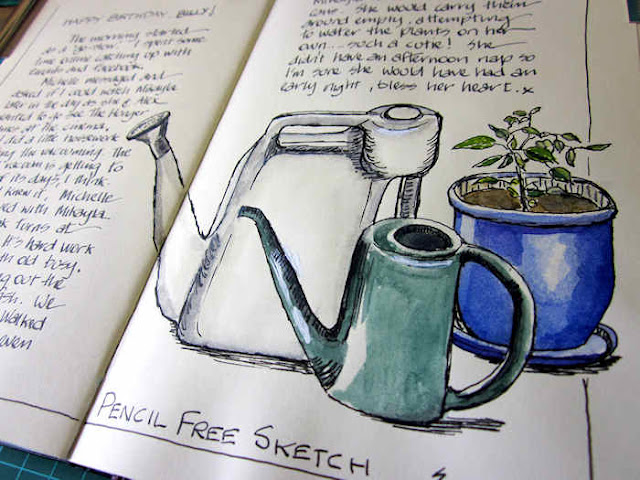 HAPPY BIRTHDAY, BILLY!
The morning started
as a 'go-slow'. I spent some
time online catching up with
Emails and Facebook.
Michelle messaged and
asked if I could watch Mikayla
later in the day as she & Nick
wanted to go see the Hunger
at the cinema,
I did a little housework
the vacuuming. The
vacuum is getting to
of its days, I think.
knew it, Michelle
with Mikayla.
turns at
It's hard work
busy.
out the
We
walked
cans. She would carry them
around empty, attempting
to water the plants on her
own... such a cutie! She
didn't have an afternoon nap so
I'm sure she would have had an
early night, bless her heart. x
PENCIL FREE SKETCH